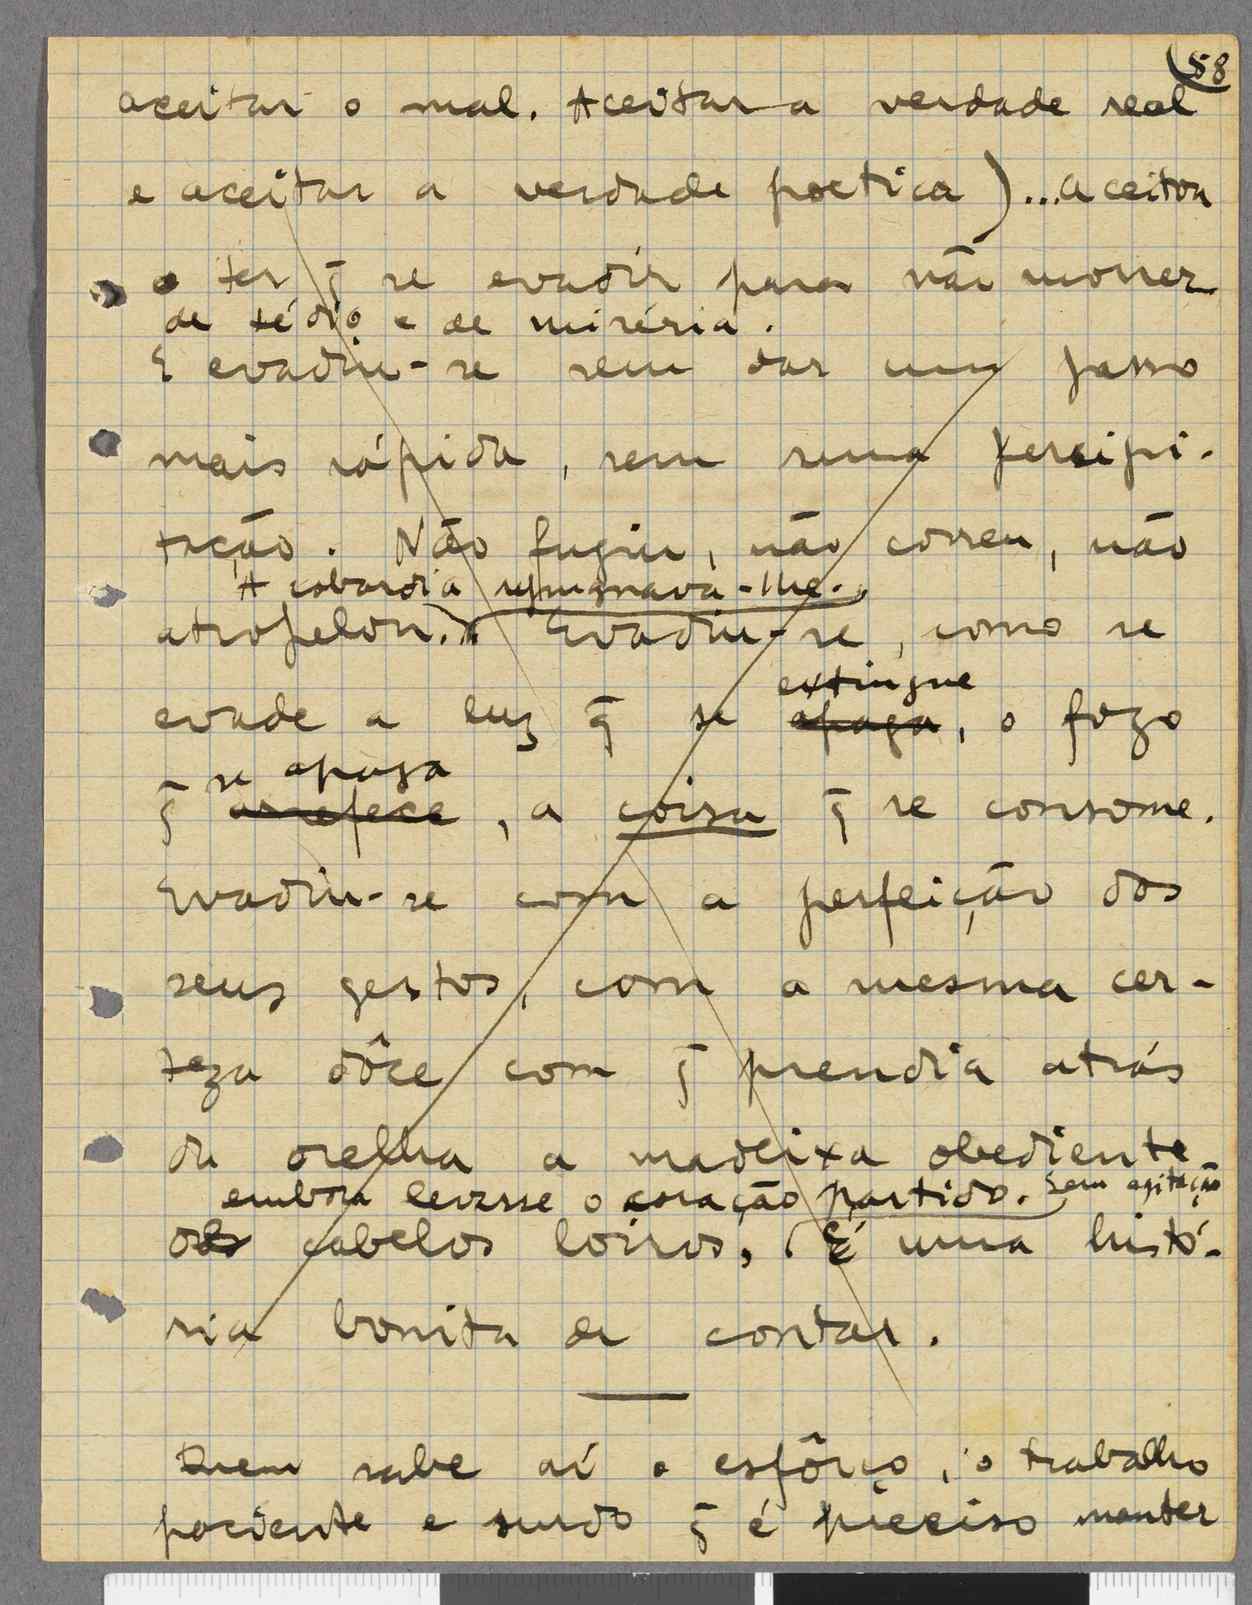 58
aceitar o mal. Aceitar a verdade real
e aceitar a verdade poetica)...aceitou
o ter q̃ se evadir para não morrer
de tédio e de miséria.
E evadiu-se sem dar um passo
mais rápido, sem uma percipi-
tação. Não fugiu, não correu, não
A cobardia repugnava-lhe.
atropelou. Evadiu-se, como se
extingue
evade a luz q̃ se apaga, o fogo
se apaga
q̃ arrefece, a coisa q̃ se consome.
Evadiu-se com a perfeição dos
seus gestos, com a mesma cer-
teza dôce com q̃ prendia atrás
da orelha a madeixa obediente
embora levasse o coração partido. Sem agitação
dos cabelos loiros, É uma histó-
ria bonita de contar.
Quem sabe aí o esfôrço, o trabalho
paciente e surdo q̃ é preciso manter